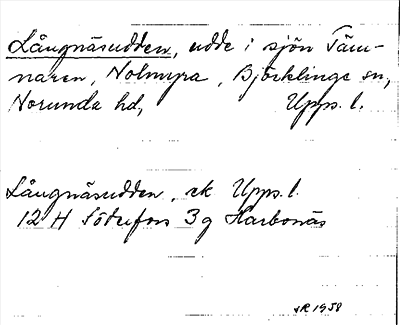 Långnäsudden, udde i sjön Täm-
naren, Nolmyra, Björklinge sn,
Norunda hd, Upps. l.
Långnäsudden, ek Upps. l.
12 H Söderfors 3 g Harbonäs
SR 1958